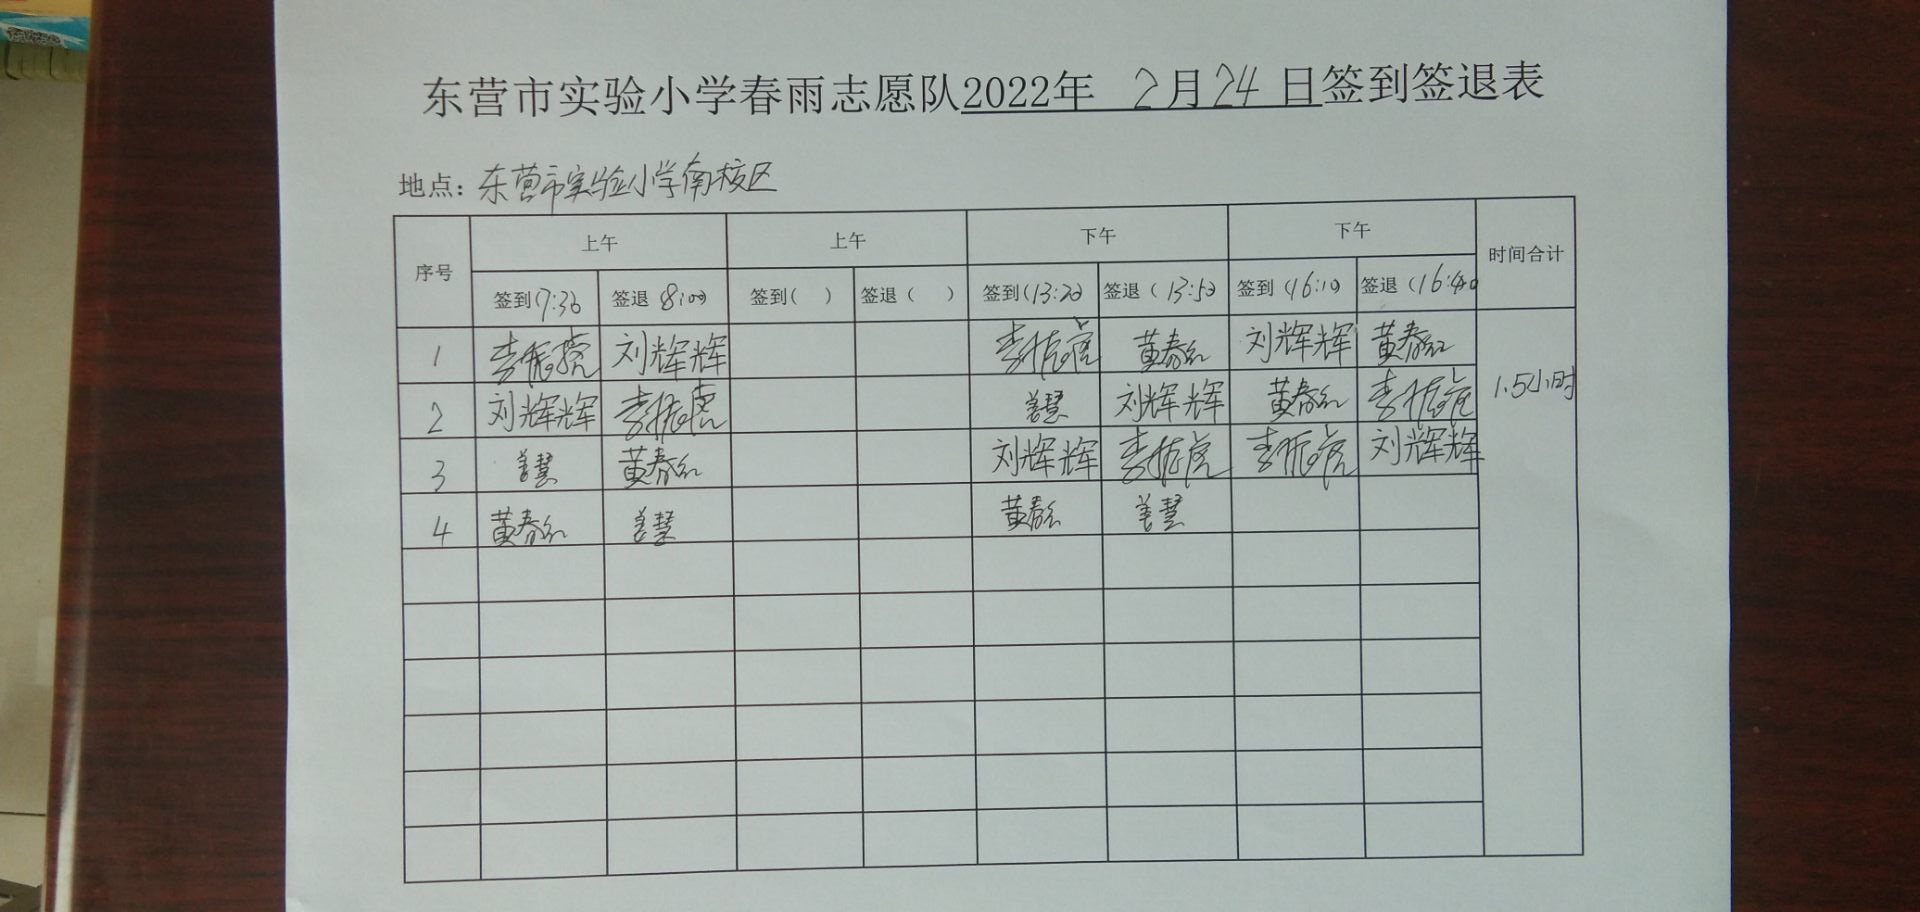 东营市实验小学春雨志愿队2022年 2月24日签到签退表
地点：东营市实验小学南校区
序号 上午 上午 下午 下午 时间合计
签到(7:30 签退(8:00) 签到( ) 签退( ) 签到(13:20 签退(13:50 签到(16:10 签退(16:40
1 李振虎 刘辉辉 李振虎 黄春红 刘辉辉 黄春红 1.5小时
2 刘辉辉 李振虎 姜慧 刘辉辉 黄春红 李振虎
3 姜慧 黄春红 刘辉辉 李振虎 李振虎 刘辉辉
4 黄春红 姜慧 黄春红 姜慧